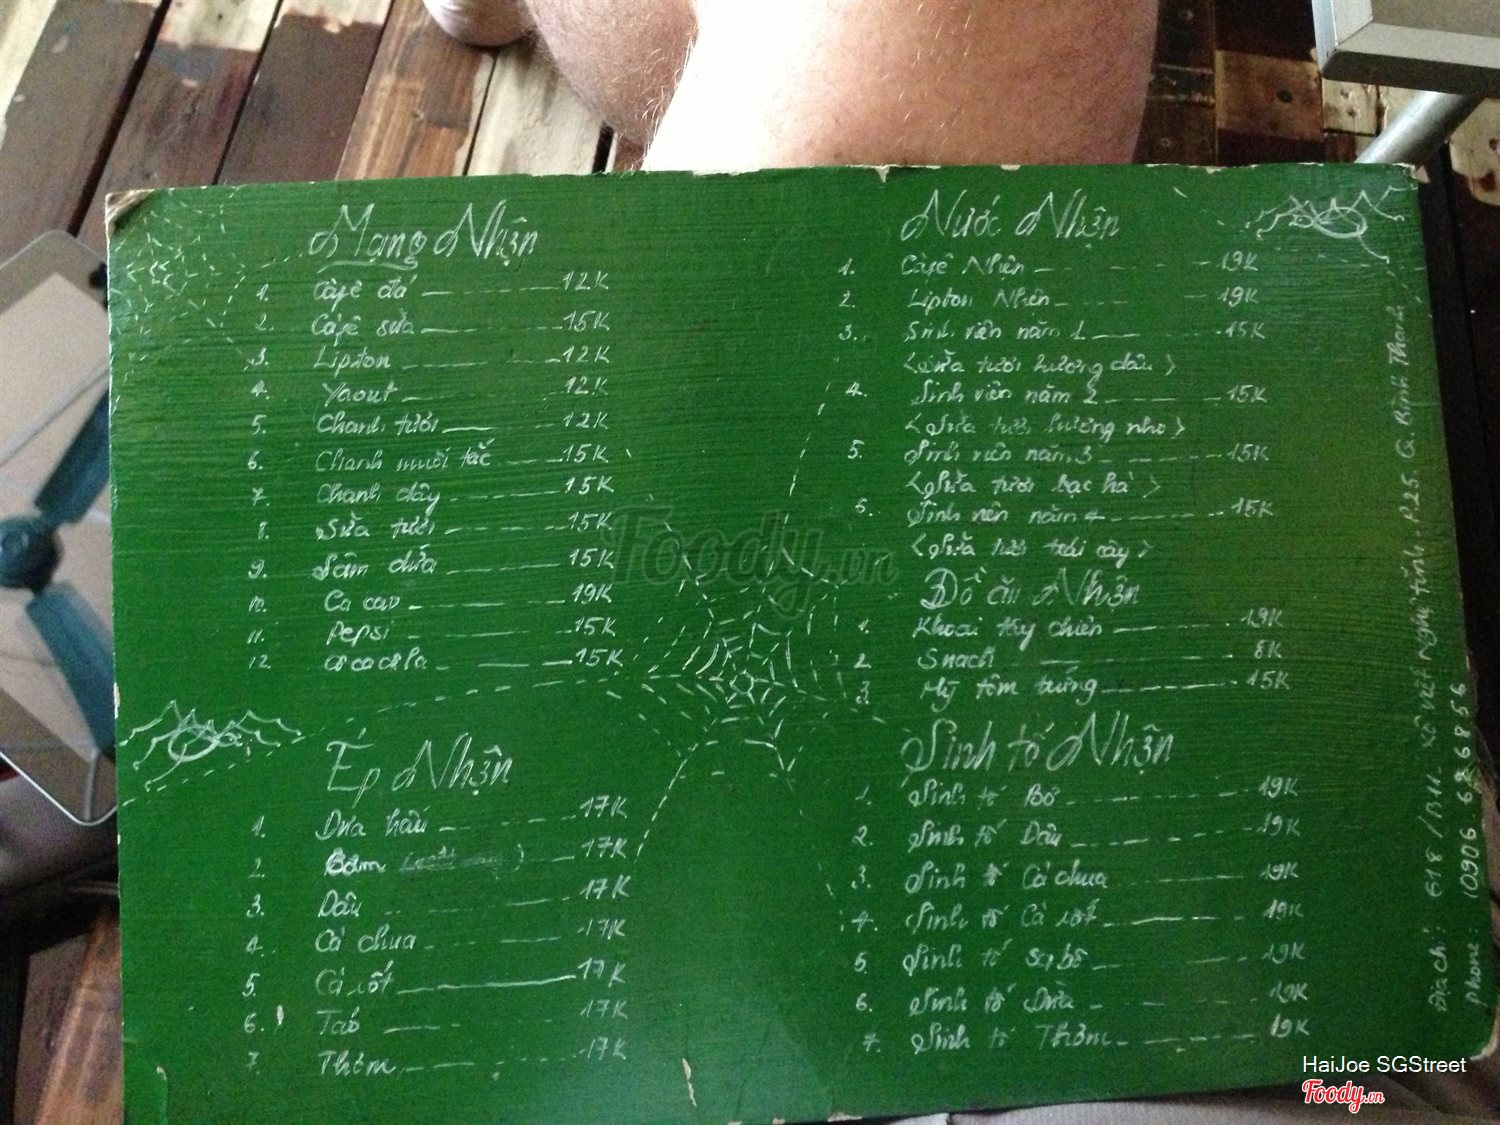 Mạng Nhện
1. Càfê đá 12K
2. Càfê sữa 15K
3. Lipton 12K
4. Yaout 12K
5. Chanh tươi 12K
6. Chanh muối tắc 15K
7. Chanh dây 15K
8. Sữa tươi 15K
9. Sâm dứa 15K
10. Ca cao 19K
11. Pepsi 15K
12. 15K
Ép Nhện
1. Dưa hấu 17K
2. Cam 17K
3. Dâu 17K
4. Cà chua 17K
5. Cà rốt 17K
6. Táo 17K
7. Thơm 17K
Nước Nhện
1. Càfê Nhện 19K
2. Lipton Nhện 19K
3. Sinh viên năm 1 15K
<Sữa tươi hương dâu>
4. Sinh viên năm 2 15K
<Sữa tươi hương nho>
5. Sinh viên năm 3 15K
<Sữa tươi bạc hà>
6. Sinh viên năm 4 15K
<Sữa tươi trái cây>
Đồ ăn Nhện
1. Khoai tây chiên 19K
2. Snach 8K
3. Mỳ tôm trứng 15K
Sinh tố Nhện
1. Sinh tố Bơ 19K
2. Sinh tố Dâu 19K
3. Sinh tố Cà chua 19K
4. Sinh tố Cà rốt 19K
5. Sinh tố sabô 19K
6. Sinh tố Dừa 19K
7. Sinh tố Thơm 19K
Địa chỉ: 618 / Xô Viết Nghệ tĩnh. P.25. Q. Bình Thạnh
Phone: 0906.686856
Foody.vn
HaiJoe SGStreet
Foody.vn